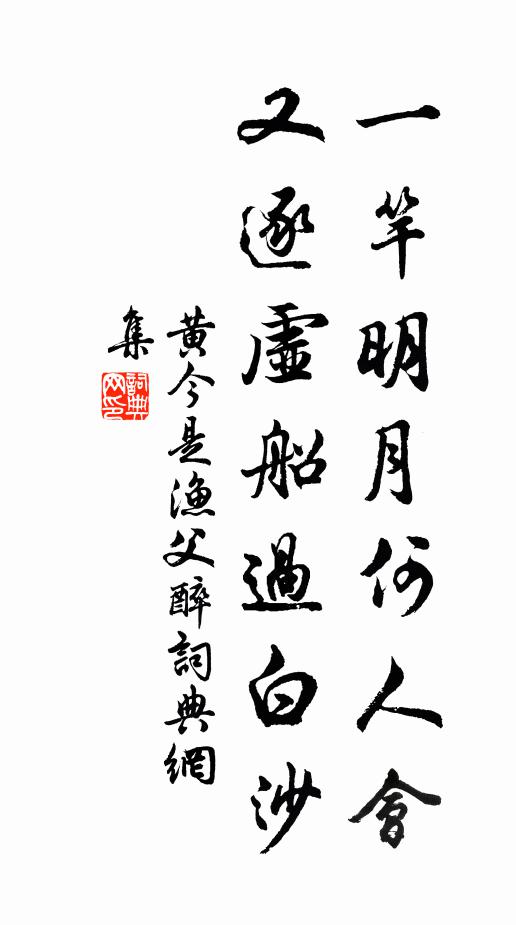 一竿明月何人會
又逐虛船過白沙
黃今是漁父醉詞典網
集
詞典
网印